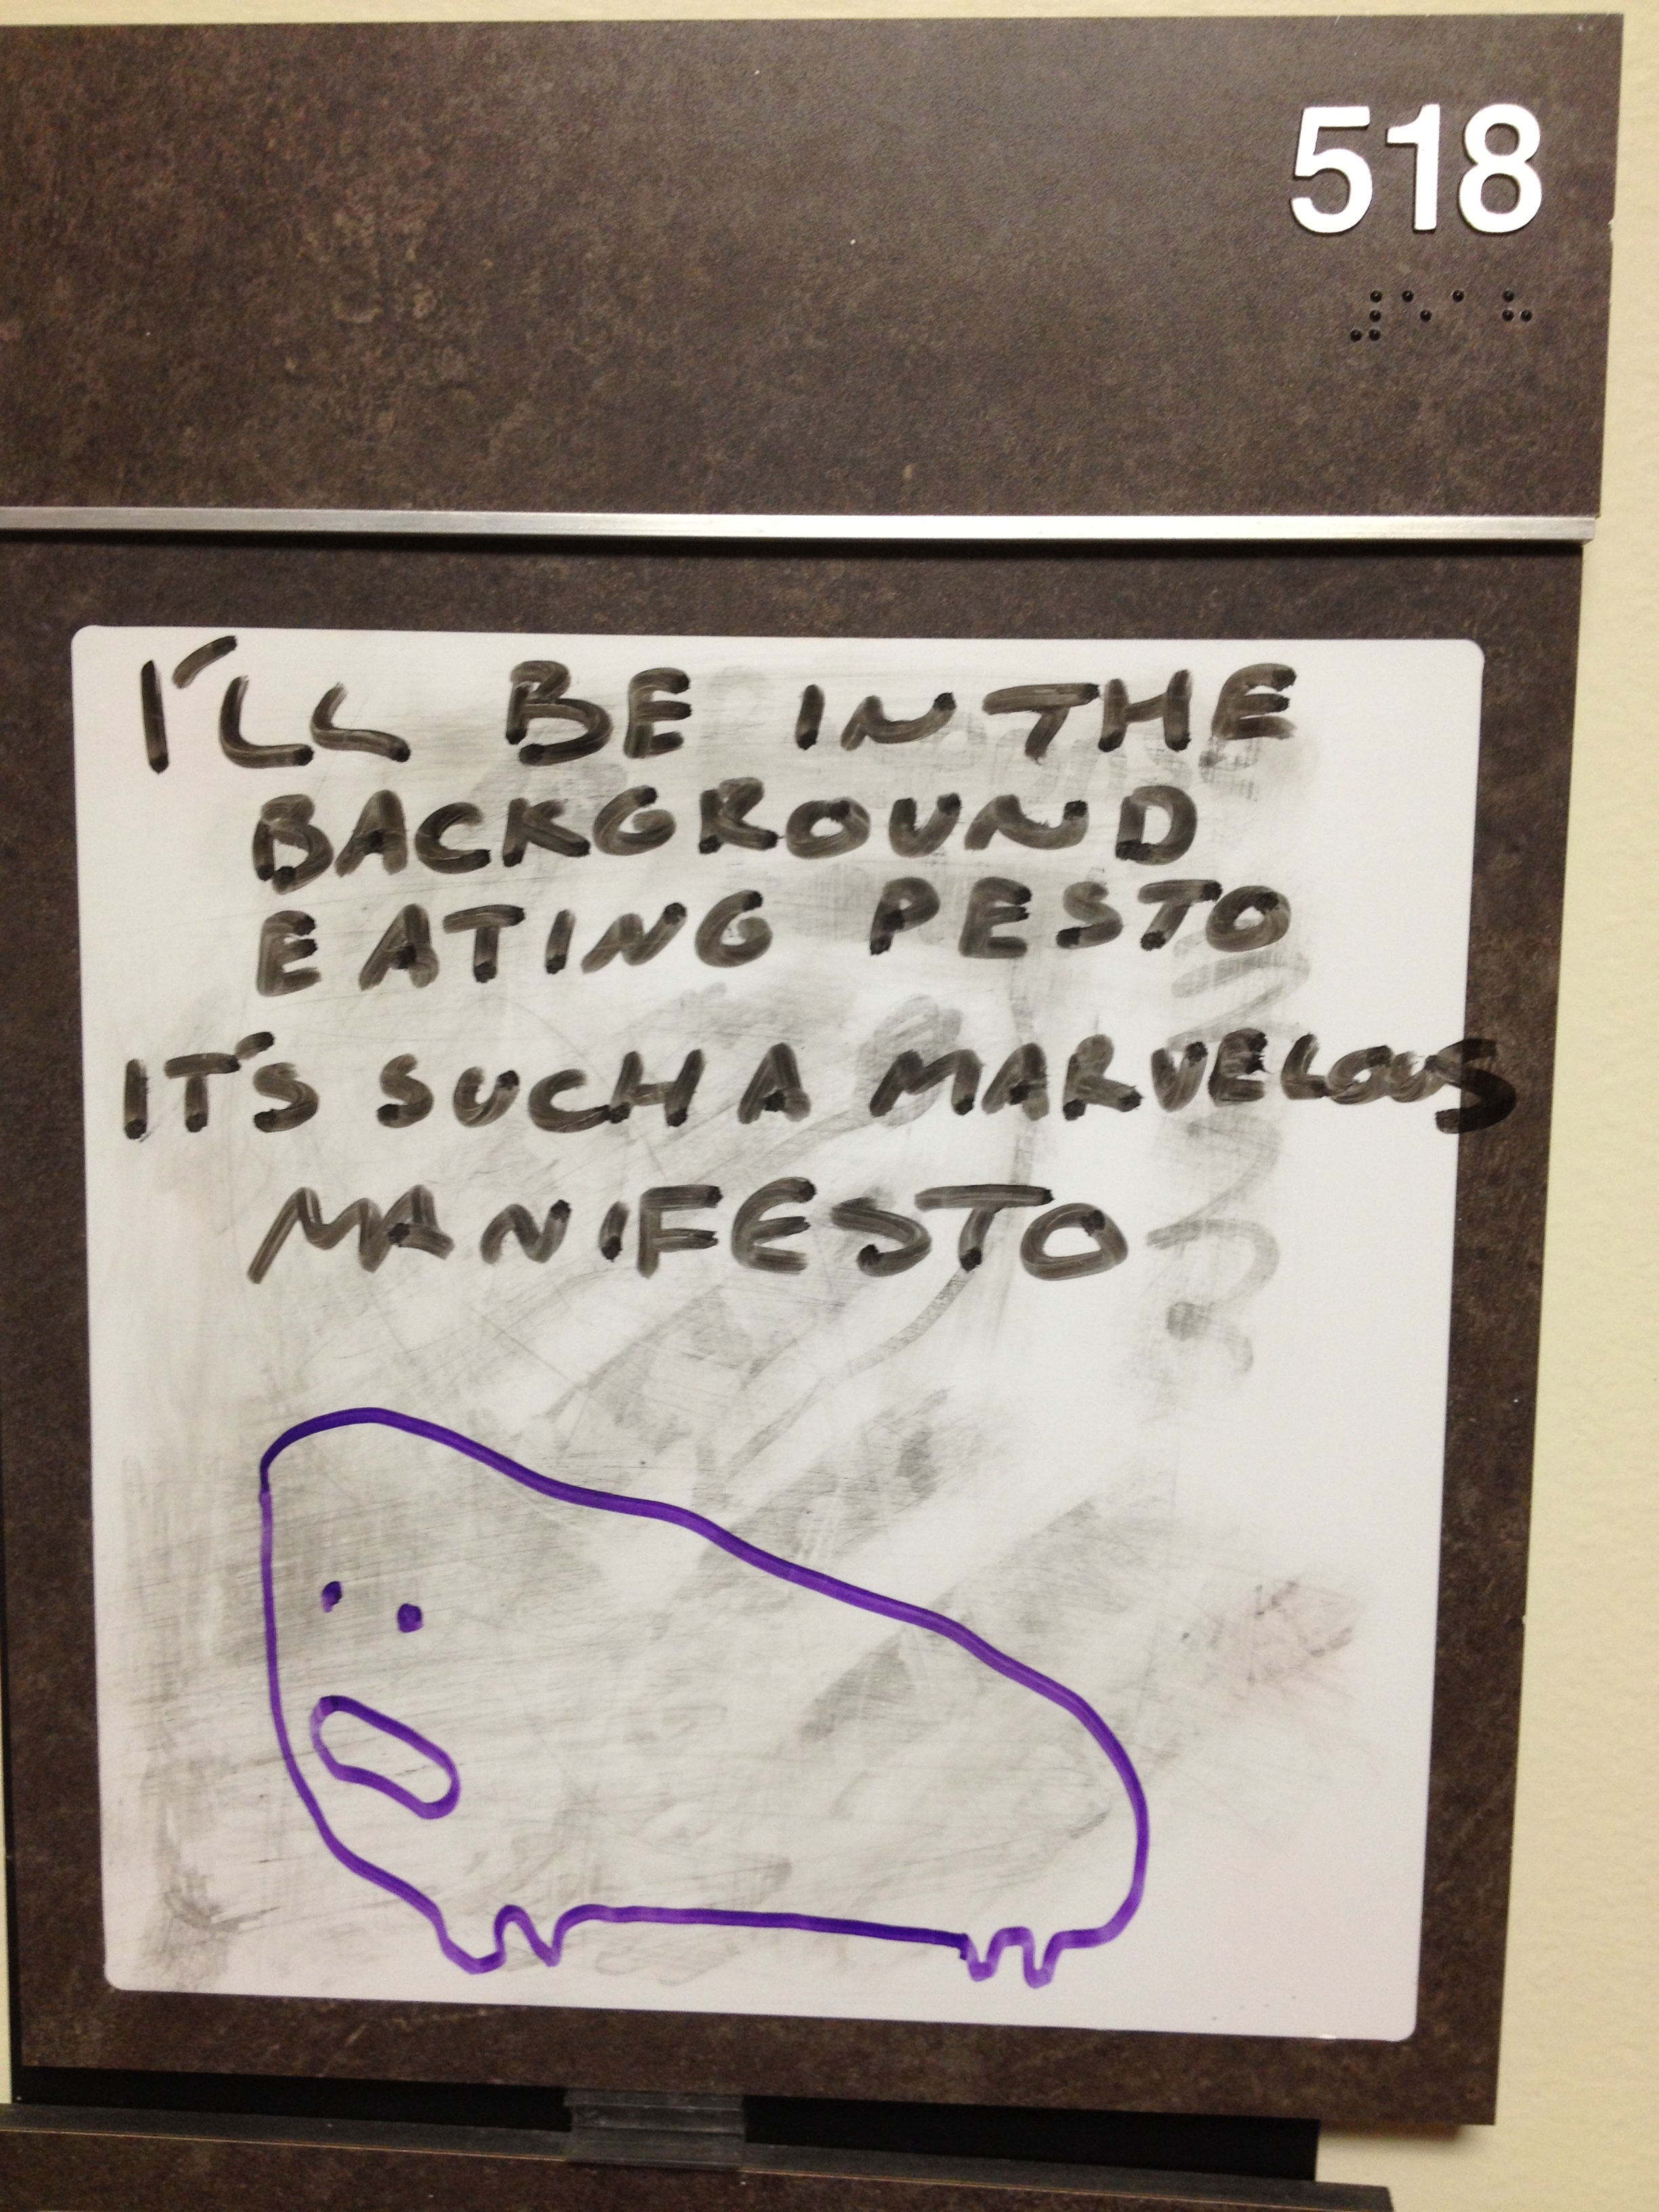 518
I'LL BE IN THE
BACKGROUND
EATING PESTO
IT'S SUCH A MARVELOUS
MANIFESTO